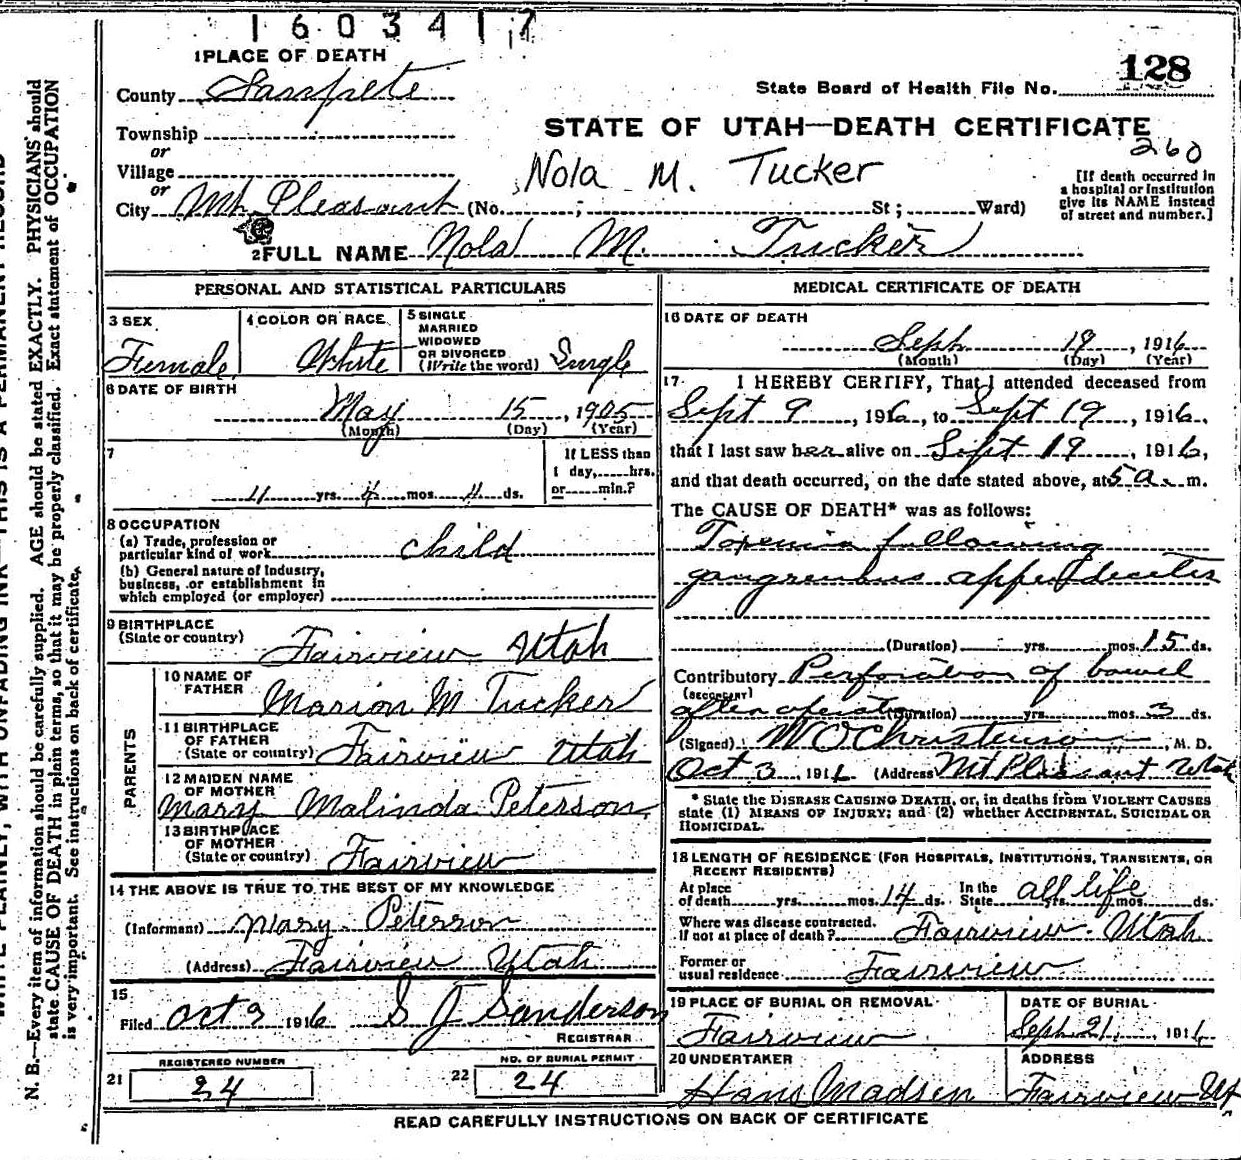 1603417
1 PLACE OF DEATH
128
County Sanpete
State Board of Health File No.
Township
STATE OF UTAH—DEATH CERTIFICATE
or
260
Village
Nola M. Tucker
or
[If death occurred in
a hospital or institution
give its NAME instead
of street and number.]
City Mt. Pleasant (No. ; St ; Ward)
2 FULL NAME Nola M. Tucker
PERSONAL AND STATISTICAL PARTICULARS
3 SEX
Female
4 COLOR OR RACE
White
5 SINGLE
MARRIED
WIDOWED
OR DIVORCED
(Write the word) Single
6 DATE OF BIRTH
May 15, 1905
(Month) (Day) (Year)
7
If LESS than
1 day, hrs.
or min.?
11 yrs. 4 mos. 4 ds.
8 OCCUPATION
(a) Trade, profession or
particular kind of work child
(b) General nature of Industry,
business, or establishment in
which employed (or employer)
9 BIRTHPLACE
(State or country) Fairview Utah
PARENTS
10 NAME OF
FATHER Marion M Tucker
11 BIRTHPLACE
OF FATHER
(State or country) Fairview Utah
12 MAIDEN NAME
OF MOTHER
Mary Malinda Peterson
13 BIRTHPLACE
OF MOTHER
(State or country) Fairview
14 THE ABOVE IS TRUE TO THE BEST OF MY KNOWLEDGE
(Informant) Mary Peterson
(Address) Fairview Utah
15
Filed Oct 3 1916 S J Sanderson
REGISTRAR
REGISTERED NUMBER
21 24
NO. OF BURIAL PERMIT
22 24
MEDICAL CERTIFICATE OF DEATH
16 DATE OF DEATH
Sept. 19, 1916
(Month) (Day) (Year)
17 I HEREBY CERTIFY, That I attended deceased from
Sept 9, 1916, to Sept 19, 1916,
that I last saw her alive on Sept 19, 1916,
and that death occurred, on the date stated above, at 5 a. m.
The CAUSE OF DEATH* was as follows:
Toxemia following
gangrenous appendicitis
(Duration) yrs. mos. 15 ds.
Contributory Perforation of bowel
(SECONDARY)
after operation (Duration) yrs. mos. 3 ds.
(Signed) W O Christenson, M. D.
Oct 3, 1916 (Address) Mt Pleasant Utah
* State the DISEASE CAUSING DEATH, or, in deaths from VIOLENT CAUSES
state (1) MEANS OF INJURY; and (2) whether ACCIDENTAL, SUICIDAL OR
HOMICIDAL.
18 LENGTH OF RESIDENCE (FOR HOSPITALS, INSTITUTIONS, TRANSIENTS, OR
RECENT RESIDENTS)
At place
of death yrs. mos. 14 ds. In the
State all life yrs. mos. ds.
Where was disease contracted,
If not at place of death? Fairview Utah
Former or
usual residence Fairview
19 PLACE OF BURIAL OR REMOVAL
Fairview
DATE OF BURIAL
Sept. 21, 1916
20 UNDERTAKER
Hans Madsen
ADDRESS
Fairview Ut
READ CAREFULLY INSTRUCTIONS ON BACK OF CERTIFICATE
N. B.—Every item of information should be carefully supplied. AGE should be stated EXACTLY. PHYSICIANS should
state CAUSE OF DEATH in plain terms, so that it may be properly classified. Exact statement of OCCUPATION
is very important. See instructions on back of certificate.